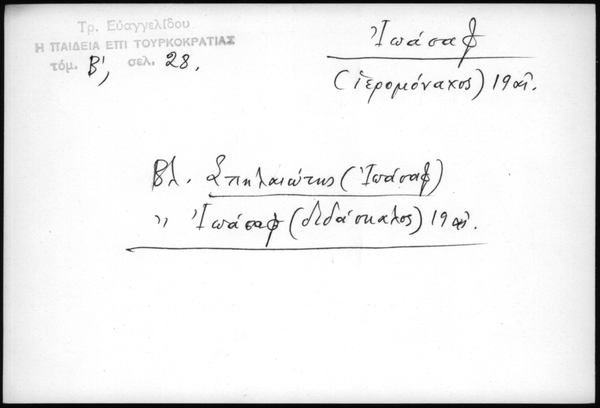 Τρ. Εὐαγγελίδου
Η ΠΑΙΔΕΙΑ ΕΠΙ ΤΟΥΡΚΟΚΡΑΤΙΑΣ
τόμ. Β', σελ. 28.
Ἰωάσαφ
(ἱερομόναχος) 19 αἰ.
Βλ. Σπηλαιώτης (Ἰωάσαφ)
" Ἰωάσαφ (διδάσκαλος) 19 αἰ.